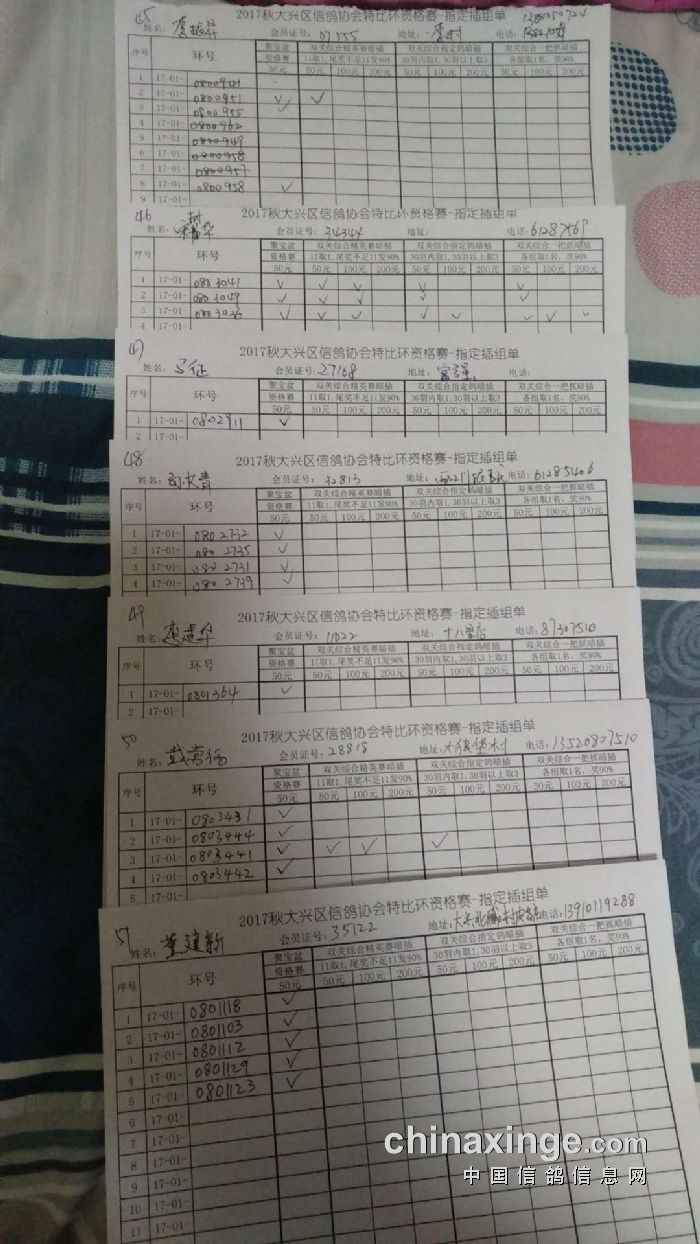 45
2017秋大兴区信鸽协会特比环资格赛-指定插组单
姓名： 会员证号：07555 地址： 电话：
序号 环号 聚宝盆 双关综合精英赛暗插 双关综合指定鸽暗插 双关综合一把抓暗插
资格赛 11取1,尾奖不足11发90% 30羽内取1,30羽以上取3 各组取1名，奖90%
50元 50元 100元 200元 50元 100元 200元 50元 100元 200元
1 17-01- 0800941
2 17-01- 0800951 ✓ ✓
3 17-01- 0800955 ✓
4 17-01- 0800962
5 17-01- 0800949
6 17-01- 0800958
7 17-01- 0800957
8 17-01- 0800958 ✓
9 17-01-
46
2017秋大兴区信鸽协会特比环资格赛-指定插组单
姓名： 会员证号：34344 地址： 电话：
序号 环号 聚宝盆 双关综合精英赛暗插 双关综合指定鸽暗插 双关综合一把抓暗插
资格赛 11取1,尾奖不足11发90% 30羽内取1,30羽以上取3 各组取1名，奖90%
50元 50元 100元 200元 50元 100元 200元 50元 100元 200元
1 17-01- 0803041 ✓ ✓ ✓ ✓ ✓
2 17-01- 0803049 ✓ ✓ ✓ ✓ ✓
3 17-01- 0803026 ✓ ✓ ✓ ✓ ✓ ✓ ✓ ✓
4 17-01-
47
2017秋大兴区信鸽协会特比环资格赛-指定插组单
姓名：马征 会员证号：27168 地址：富强 电话：
序号 环号 聚宝盆 双关综合精英赛暗插 双关综合指定鸽暗插 双关综合一把抓暗插
资格赛 11取1,尾奖不足11发90% 30羽内取1,30羽以上取3 各组取1名，奖90%
50元 50元 100元 200元 50元 100元 200元 50元 100元 200元
1 17-01- 0802911 ✓
2 17-01-
48
2017秋大兴区信鸽协会特比环资格赛-指定插组单
姓名： 会员证号：32813 地址： 电话：61285406
序号 环号 聚宝盆 双关综合精英赛暗插 双关综合指定鸽暗插 双关综合一把抓暗插
资格赛 11取1,尾奖不足11发90% 30羽内取1,30羽以上取3 各组取1名，奖90%
50元 50元 100元 200元 50元 100元 200元 50元 100元 200元
1 17-01- 0802732 ✓
2 17-01- 0802735 ✓
3 17-01- 0802731 ✓
4 17-01- 0802739 ✓
49
2017秋大兴区信鸽协会特比环资格赛-指定插组单
姓名： 会员证号：11022 地址：十八里店 电话：87307510
序号 环号 聚宝盆 双关综合精英赛暗插 双关综合指定鸽暗插 双关综合一把抓暗插
资格赛 11取1,尾奖不足11发90% 30羽内取1,30羽以上取3 各组取1名，奖90%
50元 50元 100元 200元 50元 100元 200元 50元 100元 200元
1 17-01- 0801364 ✓
2 17-01-
50
2017秋大兴区信鸽协会特比环资格赛-指定插组单
姓名： 会员证号：28818 地址： 电话：13520807510
序号 环号 聚宝盆 双关综合精英赛暗插 双关综合指定鸽暗插 双关综合一把抓暗插
资格赛 11取1,尾奖不足11发90% 30羽内取1,30羽以上取3 各组取1名，奖90%
50元 50元 100元 200元 50元 100元 200元 50元 100元 200元
1 17-01- 0803431 ✓
2 17-01- 0803444 ✓
3 17-01- 0803441 ✓ ✓ ✓ ✓
4 17-01- 0803442 ✓
5 17-01-
51
2017秋大兴区信鸽协会特比环资格赛-指定插组单
姓名：董建新 会员证号：35122 地址：大兴 电话：13910119288
序号 环号 聚宝盆 双关综合精英赛暗插 双关综合指定鸽暗插 双关综合一把抓暗插
资格赛 11取1,尾奖不足11发90% 30羽内取1,30羽以上取3 各组取1名，奖90%
50元 50元 100元 200元 50元 100元 200元 50元 100元 200元
1 17-01- 0801118 ✓
2 17-01- 0801103 ✓
3 17-01- 0801112 ✓
4 17-01- 0801129 ✓
5 17-01- 0801123 ✓
6 17-01-
7 17-01-
8 17-01-
9 17-01-
10 17-01-
11 17-01-
chinaxinge.com
中国信鸽信息网